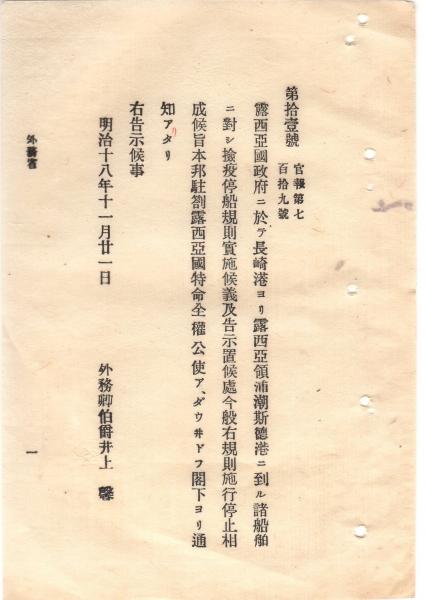 第拾壹號 官報第七百拾九號
露西亞國政府ニ於テ長崎港ヨリ露西亞領浦潮斯德港ニ到ル諸船舶
ニ對シ撿疫停船規則實施候義及告示置候處今般右規則施行停止相
成候旨本邦駐劄露西亞國特命全權公使ア、ダウ井ドフ閣下ヨリ通
知アリタリ
右告示候事
明治十八年十一月廿一日
外務卿伯爵井上 馨
外務省
一